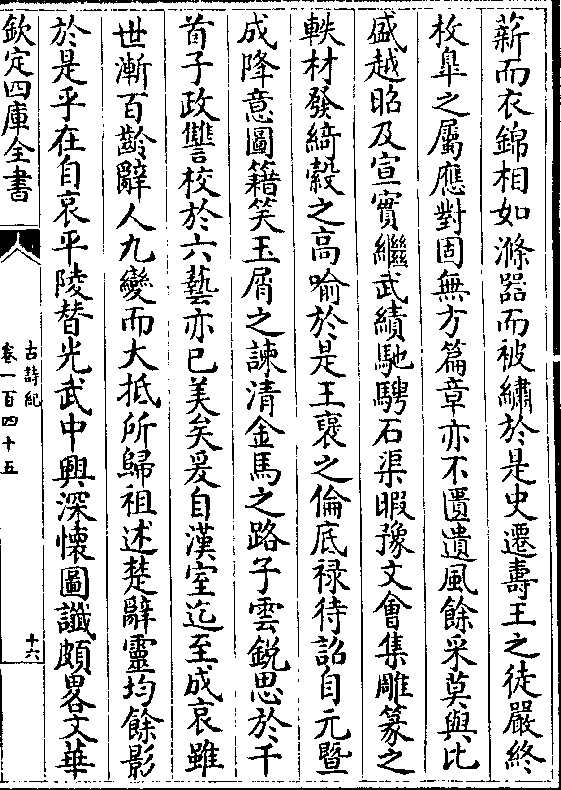 薪而衣錦相如滌器而被繡於是史遷壽王之徒嚴終
枚臯之屬應對固無方篇章亦不匱遺風餘采莫與比
盛越昭及宣實繼武績馳騁石渠暇豫文會集雕篆之
軼材發綺縠之高喻於是王襃之倫底禄待詔自元暨
成降意圖籍笑玉屑之諫清金馬之路子雲銳思於千
首子政讐校於六藝亦已美矣爰自漢室迄至成哀雖
世漸百齡辭人九變而大抵所歸祖述楚辭靈均餘影
於是乎在自哀平陵替光武中興深懷圖讖頗畧文華
欽定四庫全書
古詩紀
卷一百四十五
十六